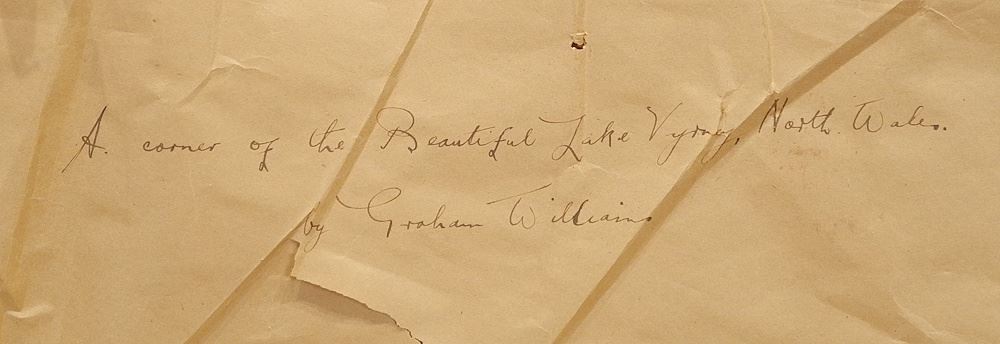 A. corner of the Beautiful Lake Vyrnwy, North Wales.
by Graham Williams